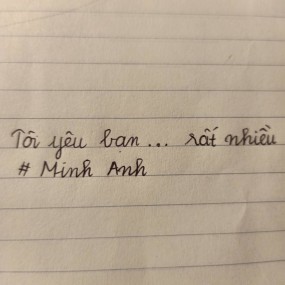 Tôi yêu bạn... rất nhiều
# Minh Anh